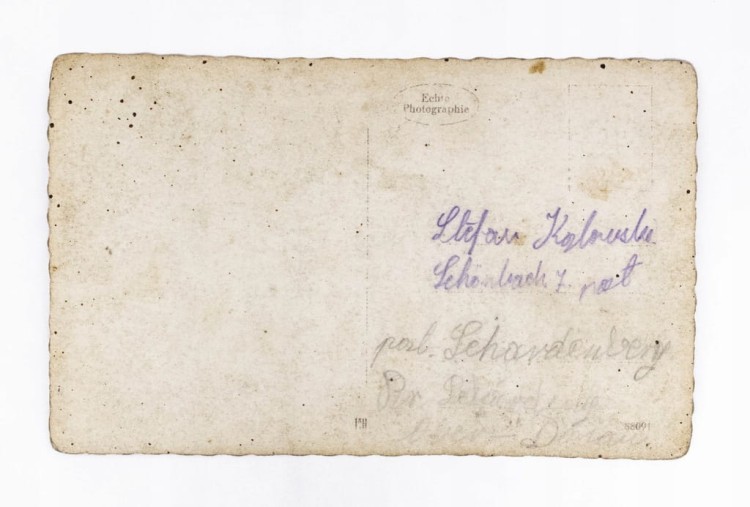 Echte
Photographie
Stefan Kozlowski
Schönbach 7. post
post. Schardenberg
Donau
88091